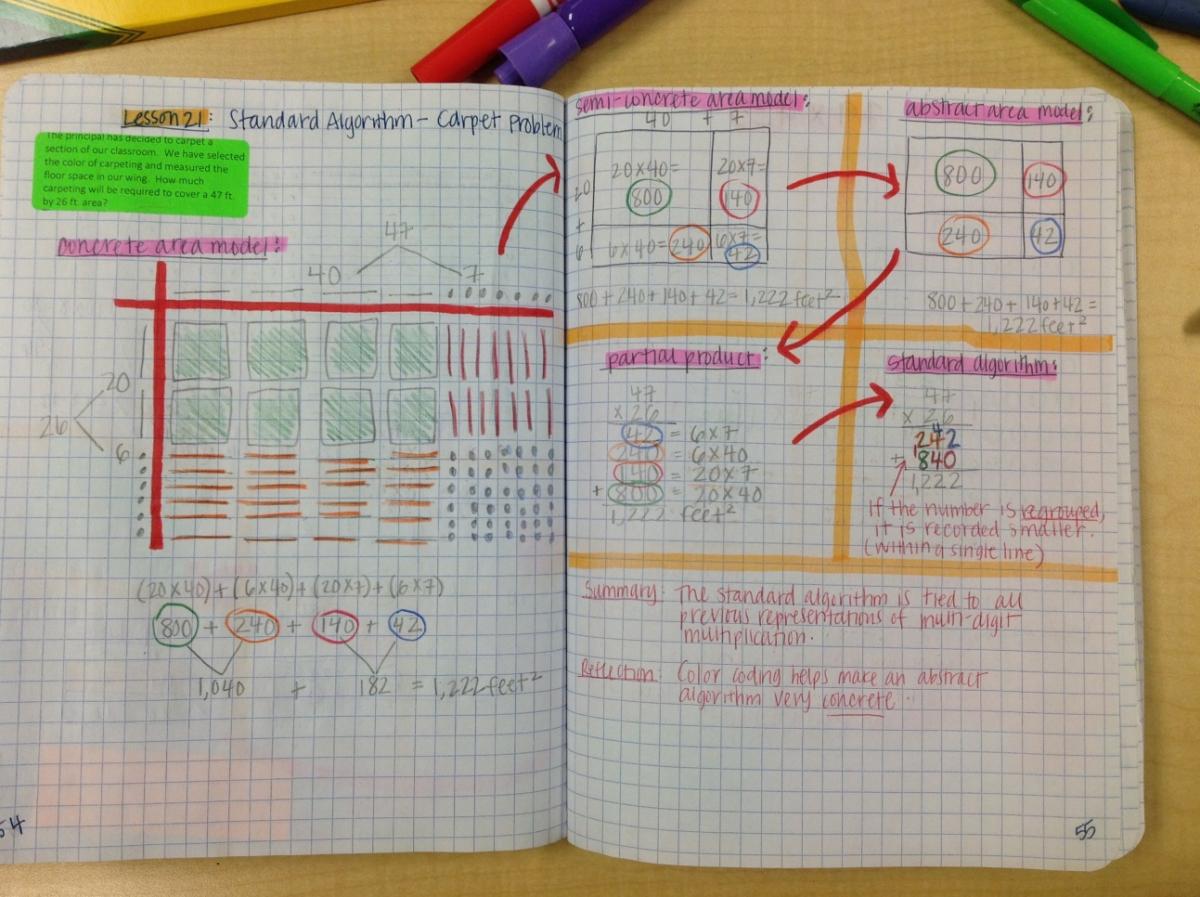 Lesson 21: Standard Algorithm - Carpet Problem
The principal has decided to carpet a
section of our classroom. We have selected
the color of carpeting and measured the
floor space in our wing. How much
carpeting will be required to cover a 47 ft.
by 26 ft. area?
concrete area model:
47
40 7
20
26
6
(20x40)+(6x40)+(20x7)+(6x7)
800 + 240 + 140 + 42
1,040 + 182 = 1,222 feet²
54
semi-concrete area model:
40 + 7
20x40= 20x7=
20 800 140
+
6 6x40=240 6x7=
42
800+240+140+42=1,222 feet²
abstract area model:
800 140
240 42
800+240+140+42=
1,222 feet²
partial product:
47
x 26
42 = 6x7
240 = 6x40
140 = 20x7
+ 800 = 20x40
1,222 feet²
standard algorithm:
47
x 26
4
242
+ 840
1,222
If the number is regrouped,
it is recorded smaller.
(within a single line)
Summary: The standard algorithm is tied to all
previous representations of multi-digit
multiplication.
Reflection: Color coding helps make an abstract
algorithm very concrete.
55